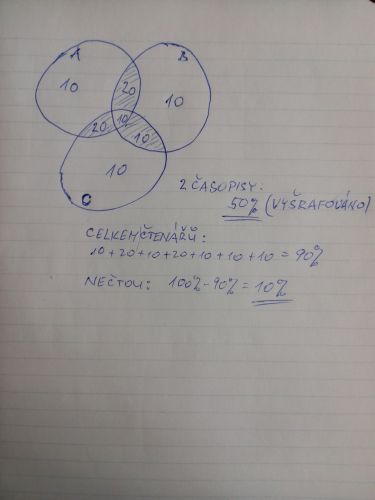 A B
10 20 10
20 10 10
10
C
2 ČASOPISY:
50% (VYŠRAFOVÁNO)
CELKEM ČTENÁŘŮ:
10+20+10+20+10+10+10 = 90%
NEČTOU: 100%-90% = 10%